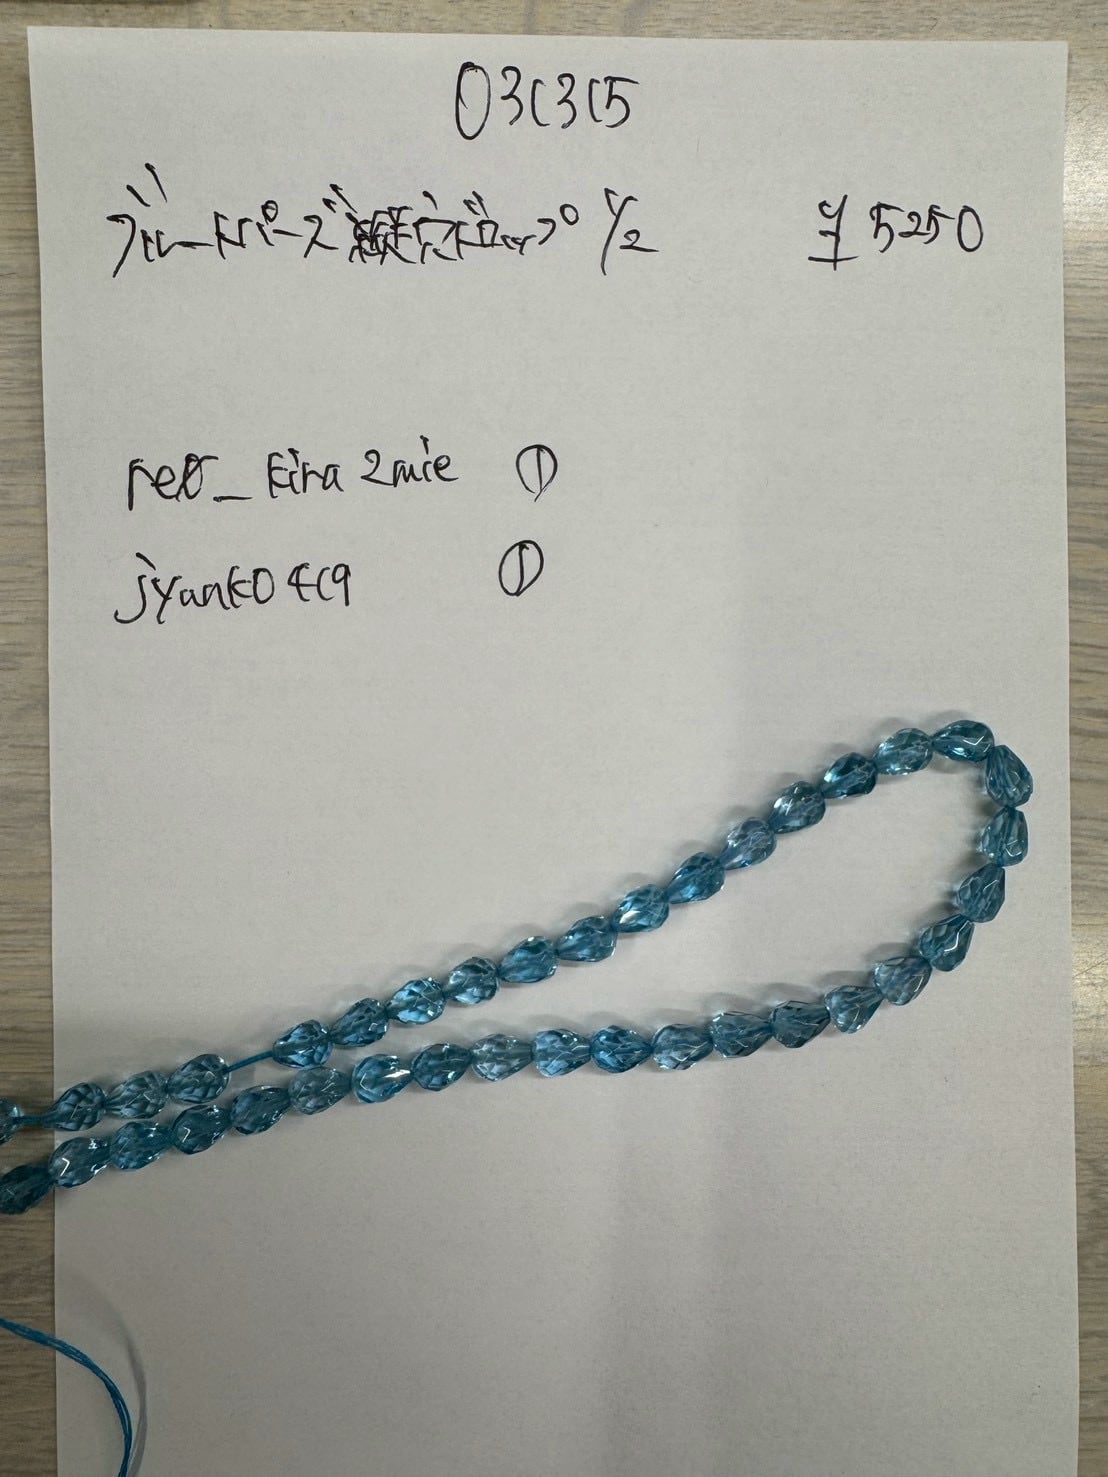 031315
ブルートパーズ縦穴ドロップ 1/2 ¥5250
reo_kira2mie ①
jyanko419 ①